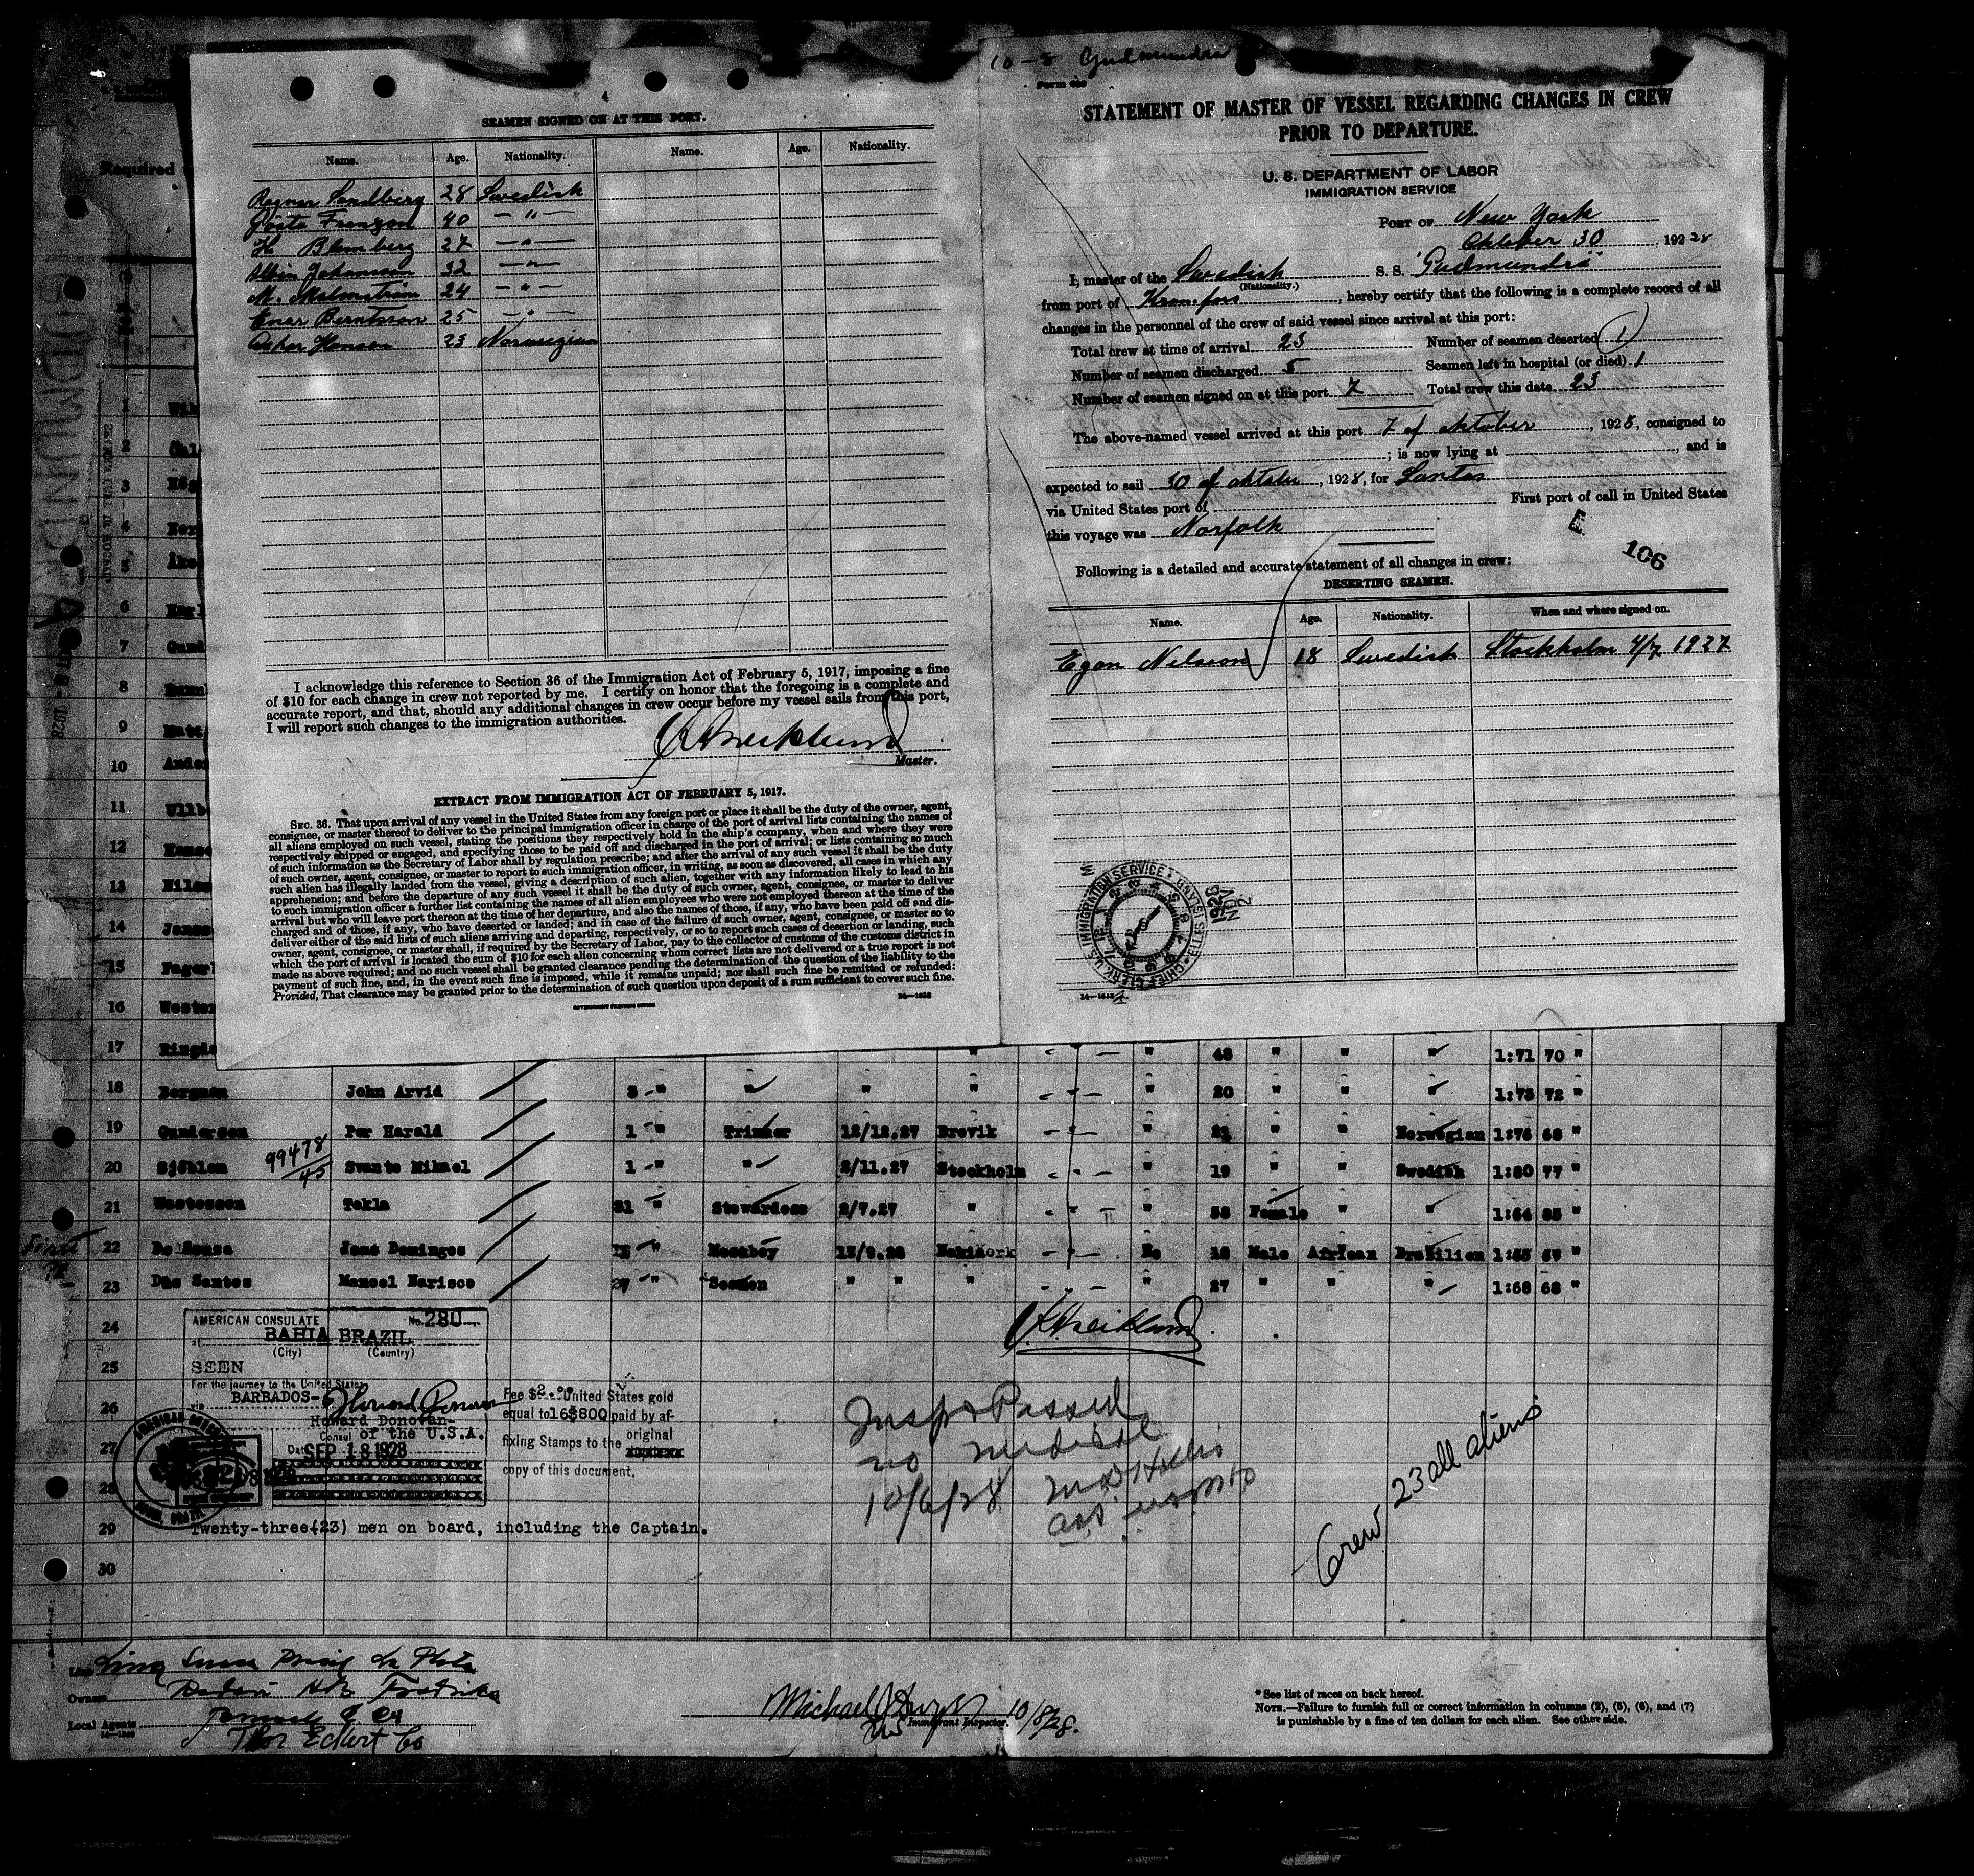 10-8 Gudmundra
SEAMEN SIGNED ON AT THIS PORT.
Name. Age. Nationality. Name. Age. Nationality.
Ragnar Sandberg 28 Swedish
Gösta Franzon 40 — " —
H Blomberg 27 — " —
Albin Johansson 32 — " —
M. Malmström 24 — " —
Einar Berntsson 25 — " —
Oskar Hanson 23 Norwegian
I acknowledge this reference to Section 36 of the Immigration Act of February 5, 1917, imposing a fine
of $10 for each change in crew not reported by me. I certify on honor that the foregoing is a complete and
accurate report, and that, should any additional changes in crew occur before my vessel sails from this port,
I will report such changes to the immigration authorities.
Master.
EXTRACT FROM IMMIGRATION ACT OF FEBRUARY 5, 1917.
SEC. 36. That upon arrival of any vessel in the United States from any foreign port or place it shall be the duty of the owner, agent,
consignee, or master thereof to deliver to the principal immigration officer in charge of the port of arrival lists containing the names of
all aliens employed on such vessel, stating the positions they respectively hold in the ship's company, when and where they were
respectively shipped or engaged, and specifying those to be paid off and discharged in the port of arrival; or lists containing so much
of such information as the Secretary of Labor shall by regulation prescribe; and after the arrival of any such vessel it shall be the duty
of such owner, agent, consignee, or master to report to such immigration officer, in writing, as soon as discovered, all cases in which any
such alien has illegally landed from the vessel, giving a description of such alien, together with any information likely to lead to his
apprehension; and before the departure of any such vessel it shall be the duty of such owner, agent, consignee, or master to deliver
to such immigration officer a further list containing the names of all alien employees who were not employed thereon at the time of the
arrival but who will leave port thereon at the time of her departure, and also the names of those, if any, who have been paid off and dis-
charged and of those, if any, who have deserted or landed; and in case of the failure of such owner, agent, consignee, or master so to
deliver either of the said lists of such aliens arriving and departing, respectively, or so to report such cases of desertion or landing, such
owner, agent, consignee, or master shall, if required by the Secretary of Labor, pay to the collector of customs of the customs district in
which the port of arrival is located the sum of $10 for each alien concerning whom correct lists are not delivered or a true report is not
made as above required; and no such vessel shall be granted clearance pending the determination of the question of the liability to the
payment of such fine, and, in the event such fine is imposed, while it remains unpaid; nor shall such fine be remitted or refunded:
Provided, That clearance may be granted prior to the determination of such question upon deposit of a sum sufficient to cover such fine.
GOVERNMENT PRINTING OFFICE 14—1613
STATEMENT OF MASTER OF VESSEL REGARDING CHANGES IN CREW
PRIOR TO DEPARTURE.
U. S. DEPARTMENT OF LABOR
IMMIGRATION SERVICE
PORT OF New York
Oktober 30, 1928
I, master of the Swedish S. S. "Gudmundrä"
(Nationality.)
from port of Kramfors, hereby certify that the following is a complete record of all
changes in the personnel of the crew of said vessel since arrival at this port:
Total crew at time of arrival 23 Number of seamen deserted 1
Number of seamen discharged 5 Seamen left in hospital (or died) 1
Number of seamen signed on at this port 7 Total crew this date 23
The above-named vessel arrived at this port 7 of oktober, 1928, consigned to
; is now lying at , and is
expected to sail 30 of oktober, 1928, for Santos
via United States port of First port of call in United States
this voyage was Norfolk
E
106
Following is a detailed and accurate statement of all changes in crew:
DESERTING SEAMEN.
Name. Age. Nationality. When and where signed on.
Egon Nelsson 18 Swedish Stockholm 4/7 1927
U.S. IMMIGRATION SERVICE ELLIS ISLAND CHIEF CLERK
NOV 2
14—1613
Required
GUDMUNDRA
1 Wil
2
3 Häg
4 Nor
5 Åke
6 Engl
7 Gust
8
9 Matt
10 Ander
11 Ullb
12 Hanso
13 Nilss
14 Janss
15 Fager
16 Wester
17 Ringis " " 48 " " " 1:71 70 "
18 Bergman John Arvid 3 -" " " " " 20 " " " 1:73 72 "
19 Gunderson Per Harald 1 -" Trimmer 12/12.27 Brevik " 21 " " Norwegian 1:76 68 "
20 Sjöblom 99478/45 Svante Mikael 1 -" " 2/11.27 Stockholm " 19 " " Swedish 1:80 77 "
21 Mastesson Tekla 31 " Stewardess 2/7.27 " " 58 Female " " 1:64 85 "
22 De Sousa Jose Domingos " Messboy 13/9.28 " No 18 Male African Brazilien
23 Dos Santos Manoel Narisco 27 " Seamen " " " " 27 " " " 1:68 68 "
24
25
26
27
28
29 Twenty-three(23) men on board, including the Captain.
30
AMERICAN CONSULATE No. 280
at BAHIA BRAZIL
(City) (Country)
SEEN
For the journey to the United States
via BARBADOS-
Howard Donovan-
Consul of the U.S.A.
Date SEP 18 1928
Fee $2.00 United States gold
equal to 16$800 paid by af-
fixing Stamps to the original
copy of this document.
Insp & Passed
no medical
10/6/28
Crew, 23 all aliens
Line
Owners
Local Agents
Thor Eckert Co
14—1240
Michael
Immigrant Inspector. 10/8/28.
* See list of races on back hereof.
NOTE.—Failure to furnish full or correct information in columns (2), (5), (6), and (7)
is punishable by a fine of ten dollars for each alien. See other side.